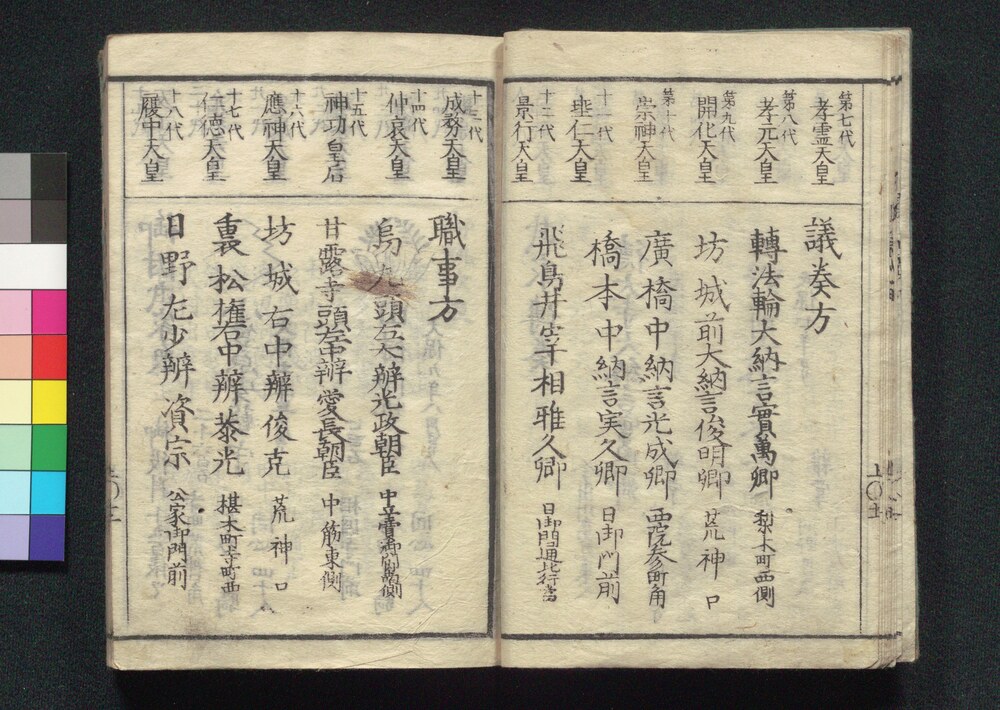 第七代
孝霊天皇
第八代
孝元天皇
第九代
開化天皇
第十代
崇神天皇
十一代
埀仁天皇
十二代
景行天皇
議奏方
轉法輪大納言實萬卿 梨木町西側
坊城前大納言俊明卿 荒神口
廣橋中納言光成卿
橋本中納言実久卿 日御門前
飛鳥井宰相雅久卿 日御門通
十三代
成務天皇
十四代
仲哀天皇
十五代
神功皇后
十六代
應神天皇
十七代
仁徳天皇
十八代
履中天皇
職事方
烏丸頭左大辨光政朝臣
甘露寺頭左中辨愛長朝臣 中筋東側
坊城右中辨俊克 荒神口
裏松権右中辨恭光 椹木町寺町西
日野左少辨資宗 公家御門前